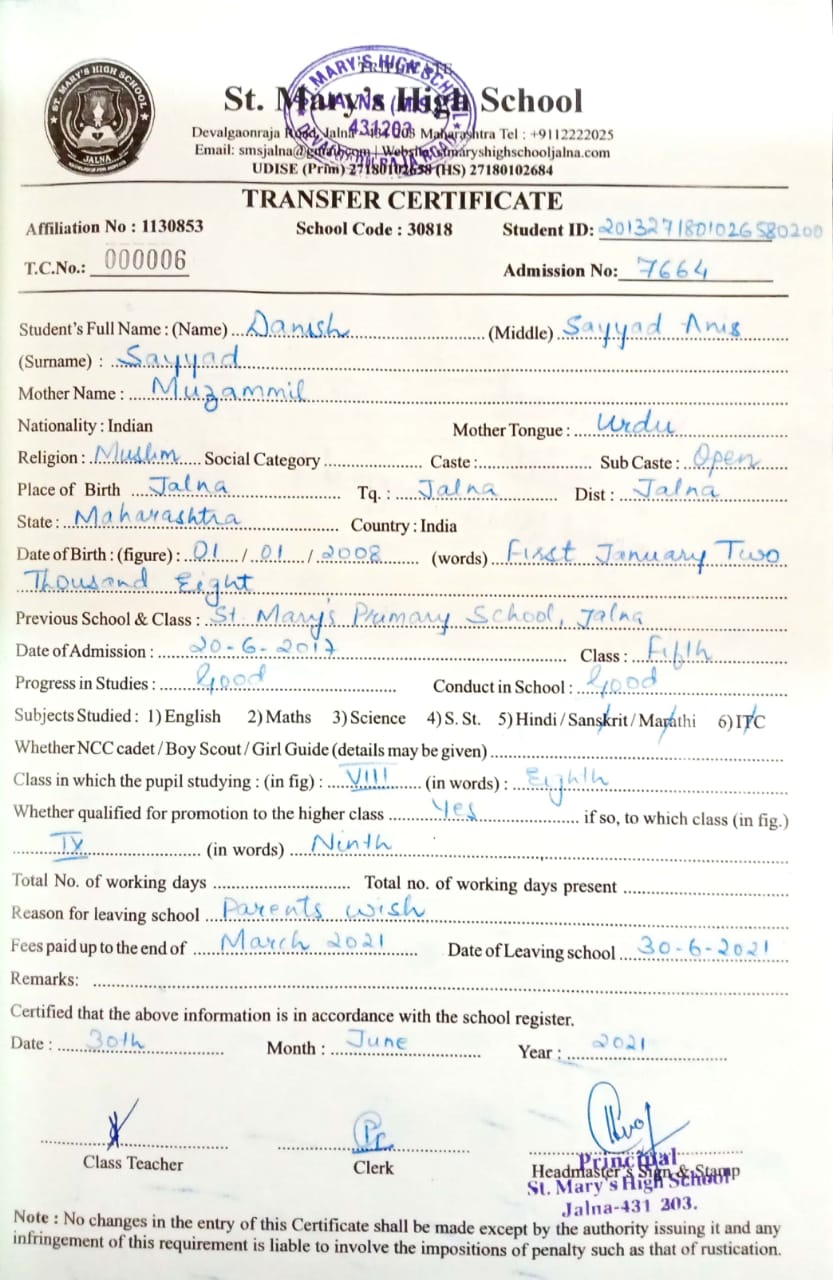 ST. MARY'S HIGH SCHOOL
JALNA
ST. MARY'S HIGH SCHOOL
431203
St. Mary's High School
Devalgaonraja Road, Jalna 203 Maharashtra Tel : +9112222025
Email: Website: stmaryshighschooljalna.com
UDISE (Prim) 27180102658 (HS) 27180102684
TRANSFER CERTIFICATE
Affiliation No : 1130853 School Code : 30818 Student ID: 2013271801026580200
T.C.No.: 000006 Admission No: 7664
Student's Full Name : (Name) Danish (Middle) Sayyad Anis
(Surname) : Sayyad
Mother Name : Muzammil
Nationality : Indian Mother Tongue : Urdu
Religion : Muslim Social Category Caste : Sub Caste : Open
Place of Birth Jalna Tq. : Jalna Dist : Jalna
State : Maharashtra Country : India
Date of Birth : (figure) : 01 / 01 / 2008 (words) First January Two
Thousand Eight
Previous School & Class : St. Mary's Primary School, Jalna
Date of Admission : 20-6-2017 Class : Fifth
Progress in Studies : Good Conduct in School : Good
Subjects Studied : 1) English 2) Maths 3) Science 4) S. St. 5) Hindi / Sanskrit / Marathi 6) ITC
Whether NCC cadet / Boy Scout / Girl Guide (details may be given)
Class in which the pupil studying : (in fig) : VIII (in words) : Eighth
Whether qualified for promotion to the higher class Yes if so, to which class (in fig.)
IX (in words) Ninth
Total No. of working days Total no. of working days present
Reason for leaving school Parents wish
Fees paid up to the end of March 2021 Date of Leaving school 30-6-2021
Remarks:
Certified that the above information is in accordance with the school register.
Date : 30th Month : June Year : 2021
Class Teacher Clerk Headmaster's Sign & Stamp
Principal
St. Mary's High School
Jalna-431 203.
Note : No changes in the entry of this Certificate shall be made except by the authority issuing it and any
infringement of this requirement is liable to involve the impositions of penalty such as that of rustication.